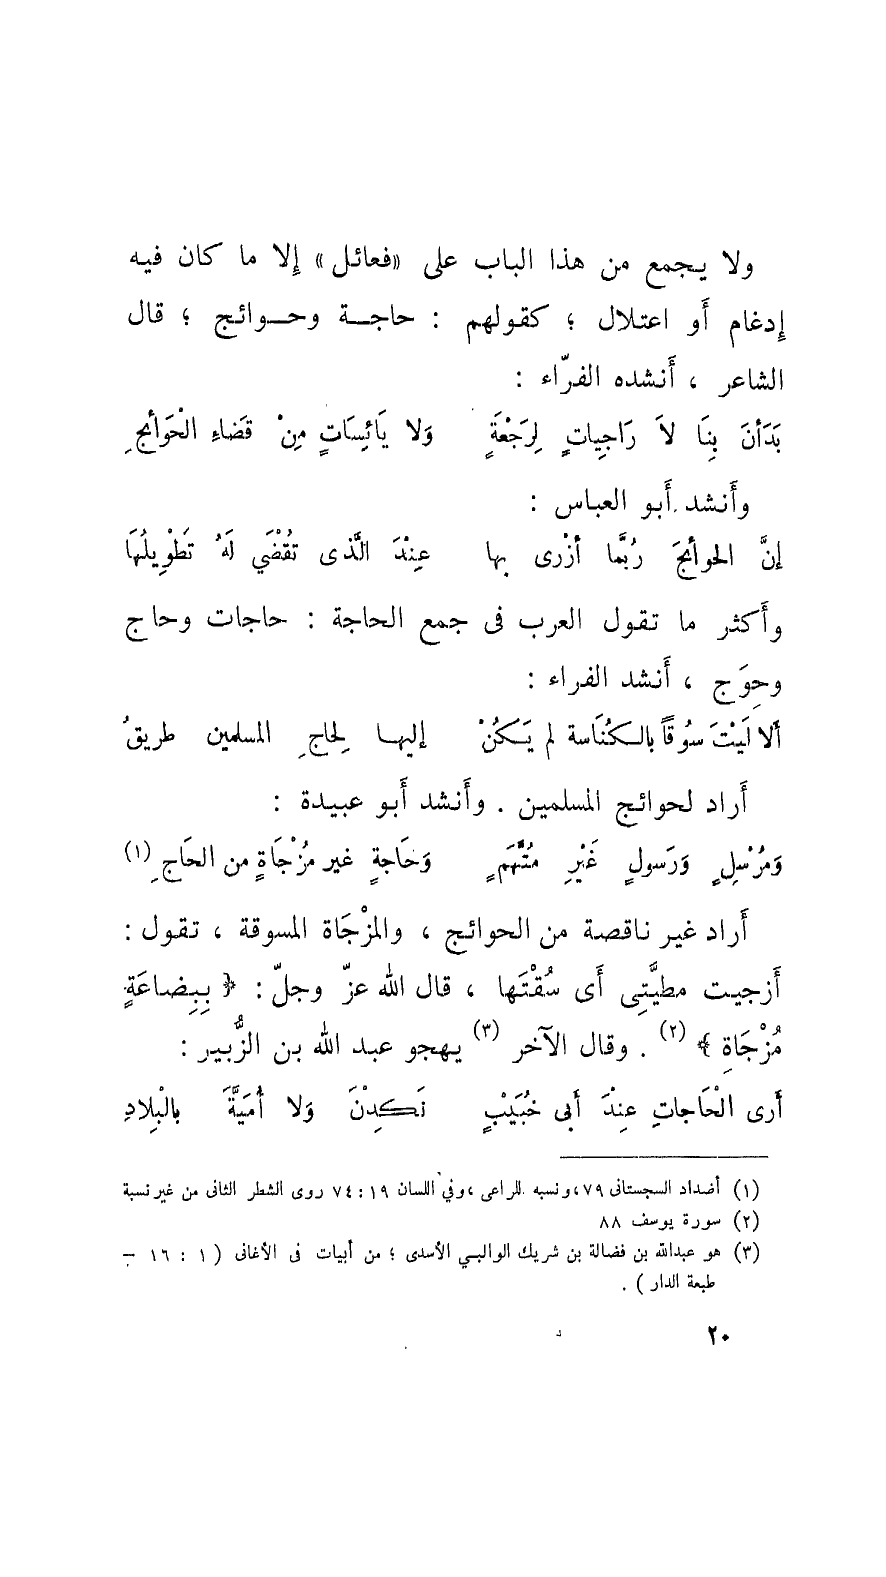 ولا يجمع من هذا الباب على «فعائل» إلا ما كان فيه
إدغام أَو اعتلال ؛ كقولهم : حاجة وحوائج ؛ قال
الشاعر ، أَنشده الفرّاء :
بَدَأنَ بِنَا لاَ رَاجِياتٍ لِرَجْعَةٍ وَلا يَائِسَاتٍ مِنْ قَضَاءِ الْحَوَائِجِ
وأَنشد أَبو العباس :
إنَّ الحوائجَ رُبَّما أزْرى بها عِنْدَ الَّذى تُقْضَي لَهُ تَطْوِيلُهَا
وأَكثر ما تقول العرب فى جمع الحاجة : حاجات وحاج
وحِوَج ، أَنشد الفراء :
ألا لَيْتَ سُوقًا بالكُنَاسة لم يَكُنْ إليها لِحاجِ المسلمين طريقُ
أَراد لحوائج المسلمين . وأَنشد أَبو عبيدة :
وَمُرْسِلٍ وَرَسولٍ غَيْرِ مُتَّهَمٍ وَحَاجةٍ غير مُزْجَاةٍ من الحَاجِ (١)
أَراد غير ناقصة من الحوائج ، والمزْجَاة المسوقة ، تقول :
أَزجيت مطيَّتِى أَى سُقْتَها ، قال الله عزّ وجلّ : ﴿ بِبِضاعَةٍ
مُزْجَاةٍ ﴾ (٢) . وقال الآخر (٣) يهجو عبد الله بن الزُّبير :
أرى الْحَاجاتِ عِنْدَ أبى خُبَيْبٍ نَكِدْنَ وَلا أُمَيَّةَ بالْبِلادِ
(١) أضداد السجستانى ٧٩، ونسبه للراعى ، وفي اللسان ١٩ : ٧٤ روى الشطر الثانى من غير نسبة
(٢) سورة يوسف ٨٨
(٣) هو عبدالله بن فضالة بن شريك الوالبي الأسدى ؛ من أبيات فى الأغانى ( ١ : ١٦ –
طبعة الدار ) .
٢٠